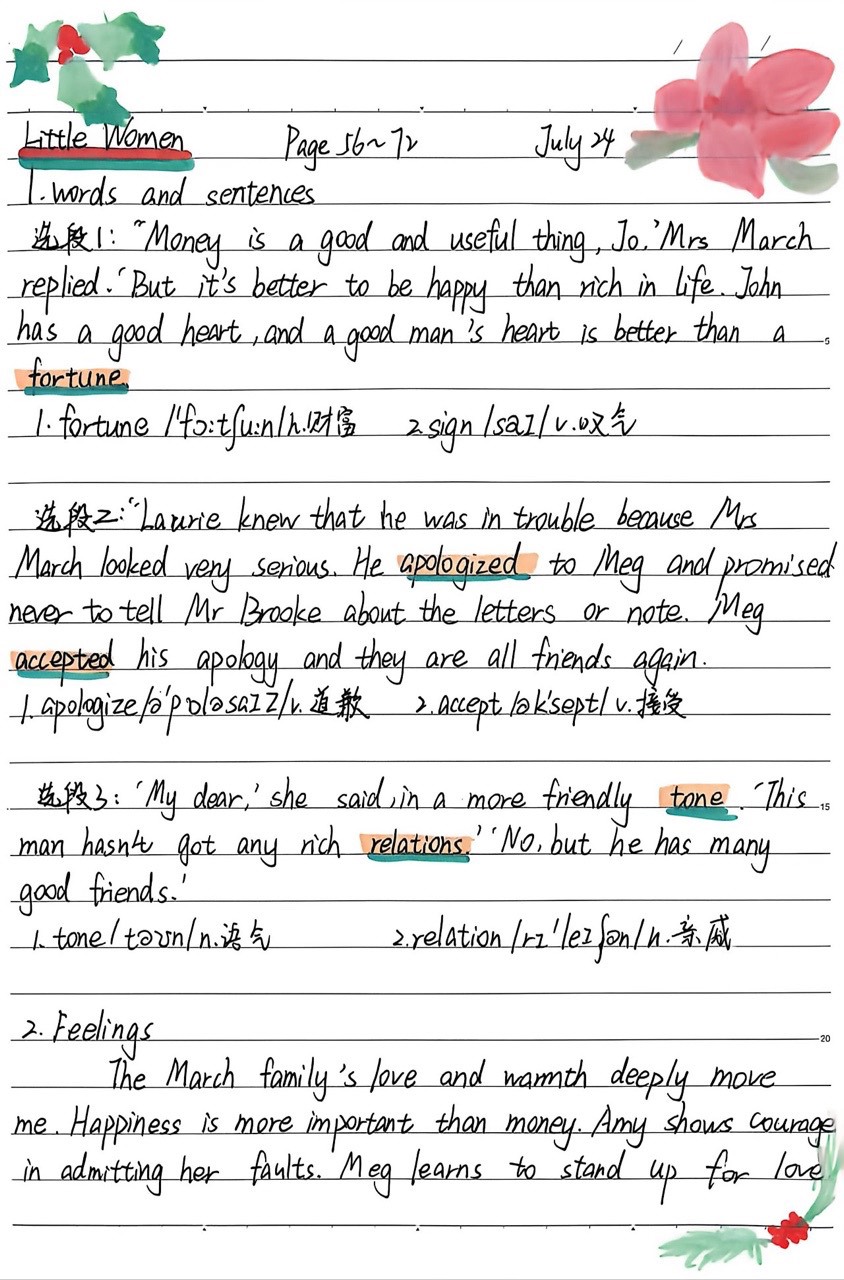 Little Women Page 56~72 July 24
1. words and sentences
选段1: "Money is a good and useful thing, Jo.' Mrs March
replied. 'But it's better to be happy than rich in life. John
has a good heart, and a good man's heart is better than a
fortune.
1. fortune /'fɔ:tʃu:n/n.财富 2.sign /saɪ/ v.叹气
5
选段2: "Laurie knew that he was in trouble because Mrs
March looked very serious. He apologized to Meg and promised
never to tell Mr Brooke about the letters or note. Meg
accepted his apology and they are all friends again.
1. apologize /ə'pɒləsaɪz/v. 道歉 2.accept /ək'sept/ v.接受
选段3: 'My dear,' she said, in a more friendly tone. 'This
15
man hasn't got any rich relations.' 'No, but he has many
good friends.'
1. tone /təʊn/n.语气 2.relation /rɪ'leɪʃən/n.亲戚
2. Feelings
20
The March family's love and warmth deeply move
me. Happiness is more important than money. Amy shows courage
in admitting her faults. Meg learns to stand up for love